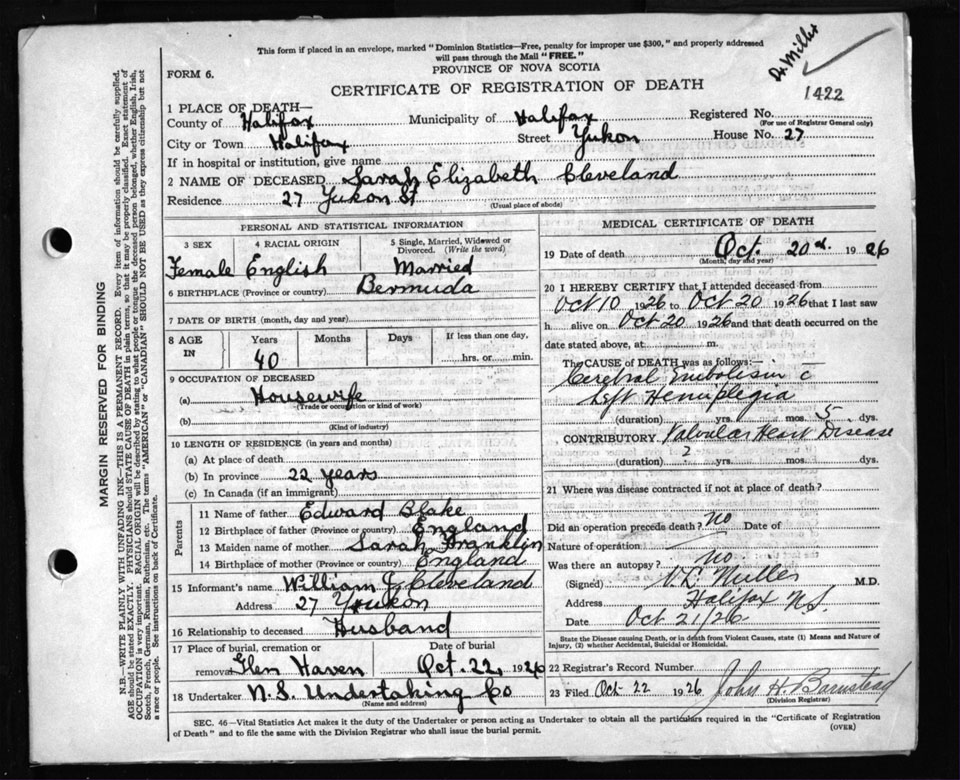 This form if placed in an envelope, marked "Dominion Statistics—Free, penalty for improper use $300," and properly addressed
will pass through the Mail "FREE."
Dr Miller
1422
FORM 6.
PROVINCE OF NOVA SCOTIA
CERTIFICATE OF REGISTRATION OF DEATH
1 PLACE OF DEATH—
County of Halifax Municipality of Halifax Registered No.
(For use of Registrar General only)
City or Town Halifax Street Yukon House No. 27
If in hospital or institution, give name
2 NAME OF DECEASED Sarah Elizabeth Cleveland
Residence 27 Yukon St
(Usual place of abode)
PERSONAL AND STATISTICAL INFORMATION
3 SEX 4 RACIAL ORIGIN 5 Single, Married, Widowed or Divorced. (Write the word)
Female English Married
6 BIRTHPLACE (Province or country) Bermuda
7 DATE OF BIRTH (month, day and year)
8 AGE IN Years Months Days If less than one day,
40 hrs. or min.
9 OCCUPATION OF DECEASED
(a) Housewife
(Trade or occupation or kind of work)
(b)
(Kind of industry)
10 LENGTH OF RESIDENCE (in years and months)
(a) At place of death
(b) In province 22 years
(c) In Canada (if an immigrant)
Parents
11 Name of father Edward Blake
12 Birthplace of father (Province or country) England
13 Maiden name of mother Sarah Franklin
14 Birthplace of mother (Province or country) England
15 Informant's name William J. Cleveland
Address 27 Youkon
16 Relationship to deceased Husband
17 Place of burial, cremation or removal Date of burial
Glen Haven Oct. 22, 1926
18 Undertaker N. S. Undertaking Co
(Name and address)
MEDICAL CERTIFICATE OF DEATH
19 Date of death Oct. 20 1926
(Month, day and year)
20 I HEREBY CERTIFY that I attended deceased from
Oct 10 1926 to Oct 20 1926 that I last saw
h alive on Oct 20 1926 and that death occurred on
date stated above, at m.
The CAUSE OF DEATH was as follows:
Cerebral Embolism c
Left Hemiplegia
(duration) yrs. mos. 5 dys.
CONTRIBUTORY. Valvular Heart Disease
(duration) ? yrs. mos. dys.
21 Where was disease contracted if not at place of death?
Did an operation precede death? no Date of
Nature of operation
Was there an autopsy? no
(Signed) Miller M.D.
Address Halifax N.S.
Date Oct 21/26
State the Disease causing Death, or in death from Violent Causes, state (1) Means and Nature of
Injury, (2) whether Accidental, Suicidal or Homicidal.
22 Registrar's Record Number
23 Filed Oct 22 1926 John H. Barnstead
(Division Registrar)
SEC. 46—Vital Statistics Act makes it the duty of the Undertaker or person acting as Undertaker to obtain all the particulars required in the "Certificate of Registration
of Death" and to file the same with the Division Registrar who shall issue the burial permit.
(OVER)
MARGIN RESERVED FOR BINDING
N.B.—WRITE PLAINLY WITH UNFADING INK—THIS IS A PERMANENT RECORD. Every item of information should be carefully supplied.
AGE should be stated EXACTLY. PHYSICIANS should STATE CAUSE OF DEATH in plain terms, so that it may be properly classified. Exact statement of
OCCUPATION is very important. RACIAL ORIGIN will be described by stating to what people or tongue the deceased person belonged, whether English, Irish,
Scotch, French, German, Russian, Ruthenian, etc. The terms "AMERICAN" or "CANADIAN" SHOULD NOT BE USED as they express citizenship but not
a race or people. See instructions on back of Certificate.